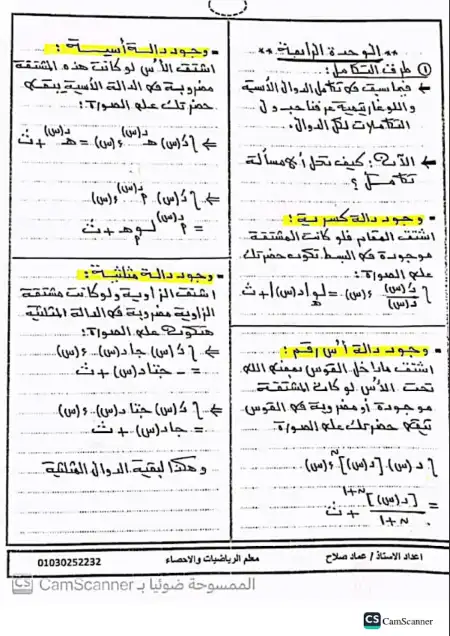 ** الوحدة الرابعة **
① طرق التكامل:
← فيما سبق فى تكامل الدوال الأسية
و اللوغاريتمية عرفنا جدول
التكاملات لتلك الدوال.
← الآن: كيف تحل أى مسألة
تكامل ؟
▪ وجود دالة كسرية :
اشتق المقام فلو كانت المشتقة
موجودة فى البسط تكون حضرتك
على الصورة:
▪ وجود دالة أس رقم :
اشتق ما داخل القوس
تحت الأس لو كانت المشتقة
موجودة أو مضروبة فى القوس
تبقى حضرتك على الصورة
▪ وجود دالة أسية :
اشتق الأس لو كانت هذه المشتقة
مضروبة فى الدالة الأسية يبقى
حضرتك على الصورة:
▪ وجود دالة مثلثية :
اشتق الزاوية ولو كانت مشتقة
الزاوية مضروبة فى الدالة المثلثية
هتكون على الصورة:
= - جتا د(س) + ث
= جا د(س) + ث
وهكذا لبقية الدوال المثلثية
اعداد الاستاذ / عماد صلاح معلم الرياضيات والاحصاء 01030252232
الممسوحة ضوئيا بـ CamScanner
CS CamScanner